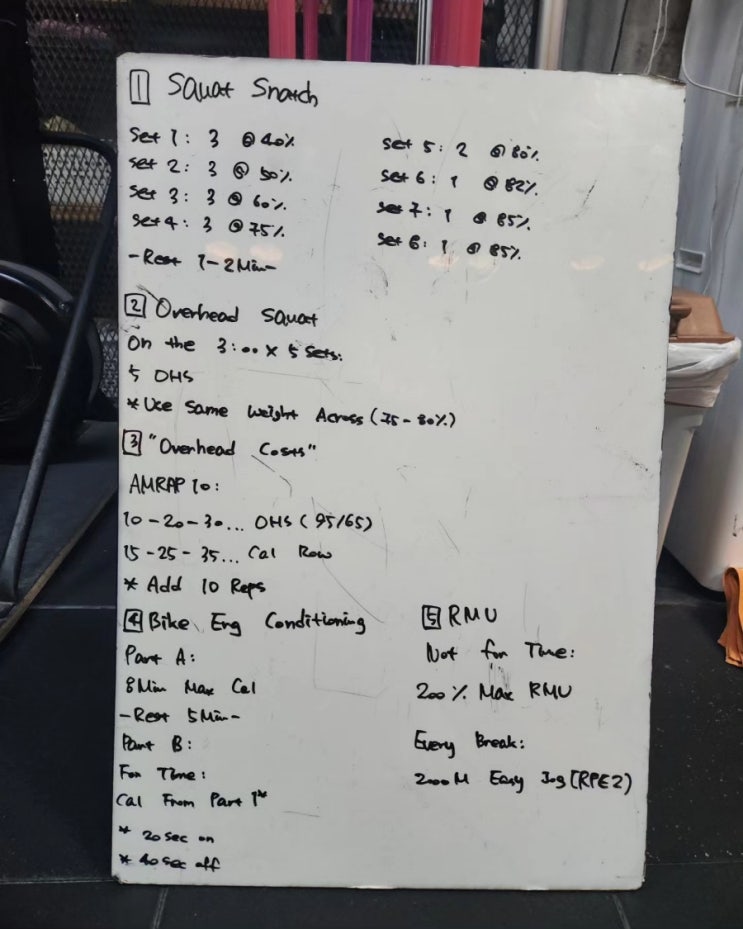 1 Squat Snatch
Set 1: 3 @ 40%
Set 2: 3 @ 50%
Set 3: 3 @ 60%
Set 4: 3 @ 75%
-Rest 1-2 Min-
Set 5: 2 @ 80%
Set 6: 1 @ 82%
Set 7: 1 @ 85%
Set 8: 1 @ 85%
2 Overhead Squat
On the 3:00 X 5 Sets:
5 OHS
* Use Same Weight Across (75-80%)
3 "Overhead Costs"
AMRAP 10:
10-20-30... OHS (95/65)
15-25-35... Cal Row
* Add 10 Reps
4 Bike Erg Conditioning
Part A:
8 Min Max Cal
-Rest 5 Min-
Part B:
For Time:
Cal From Part 1*
* 20 Sec on
* 40 Sec off
5 RMU
Not for Time:
200% Max RMU
Every Break:
200M Easy Jog (RPE2)